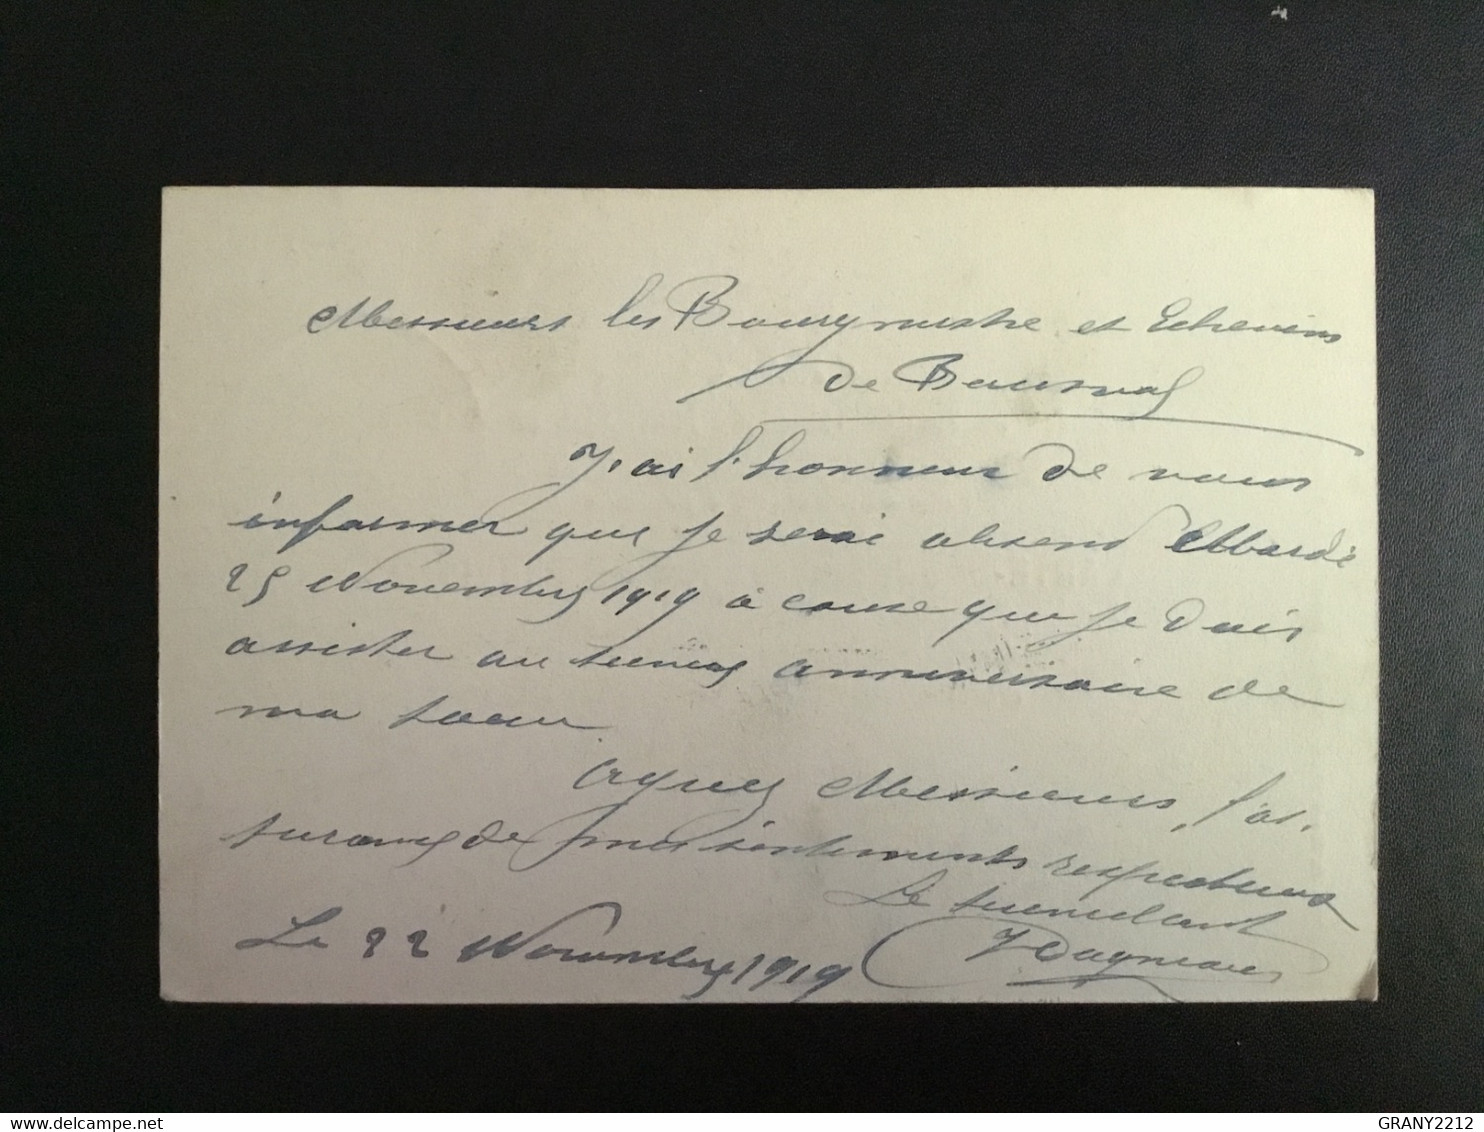 Messieurs les Bourgmestre et Echevins
de Beusval
J'ai l'honneur de vous
informer que je serai absent Mardi
25 Novembre 1919 à cause que je dois
assister au anniversaire de
ma soeur
Agréez Messieurs, l'as-
surance de mes sentements respectueux
Le
Le 22 Novembre 1919
delcampe.net
GRANY2212